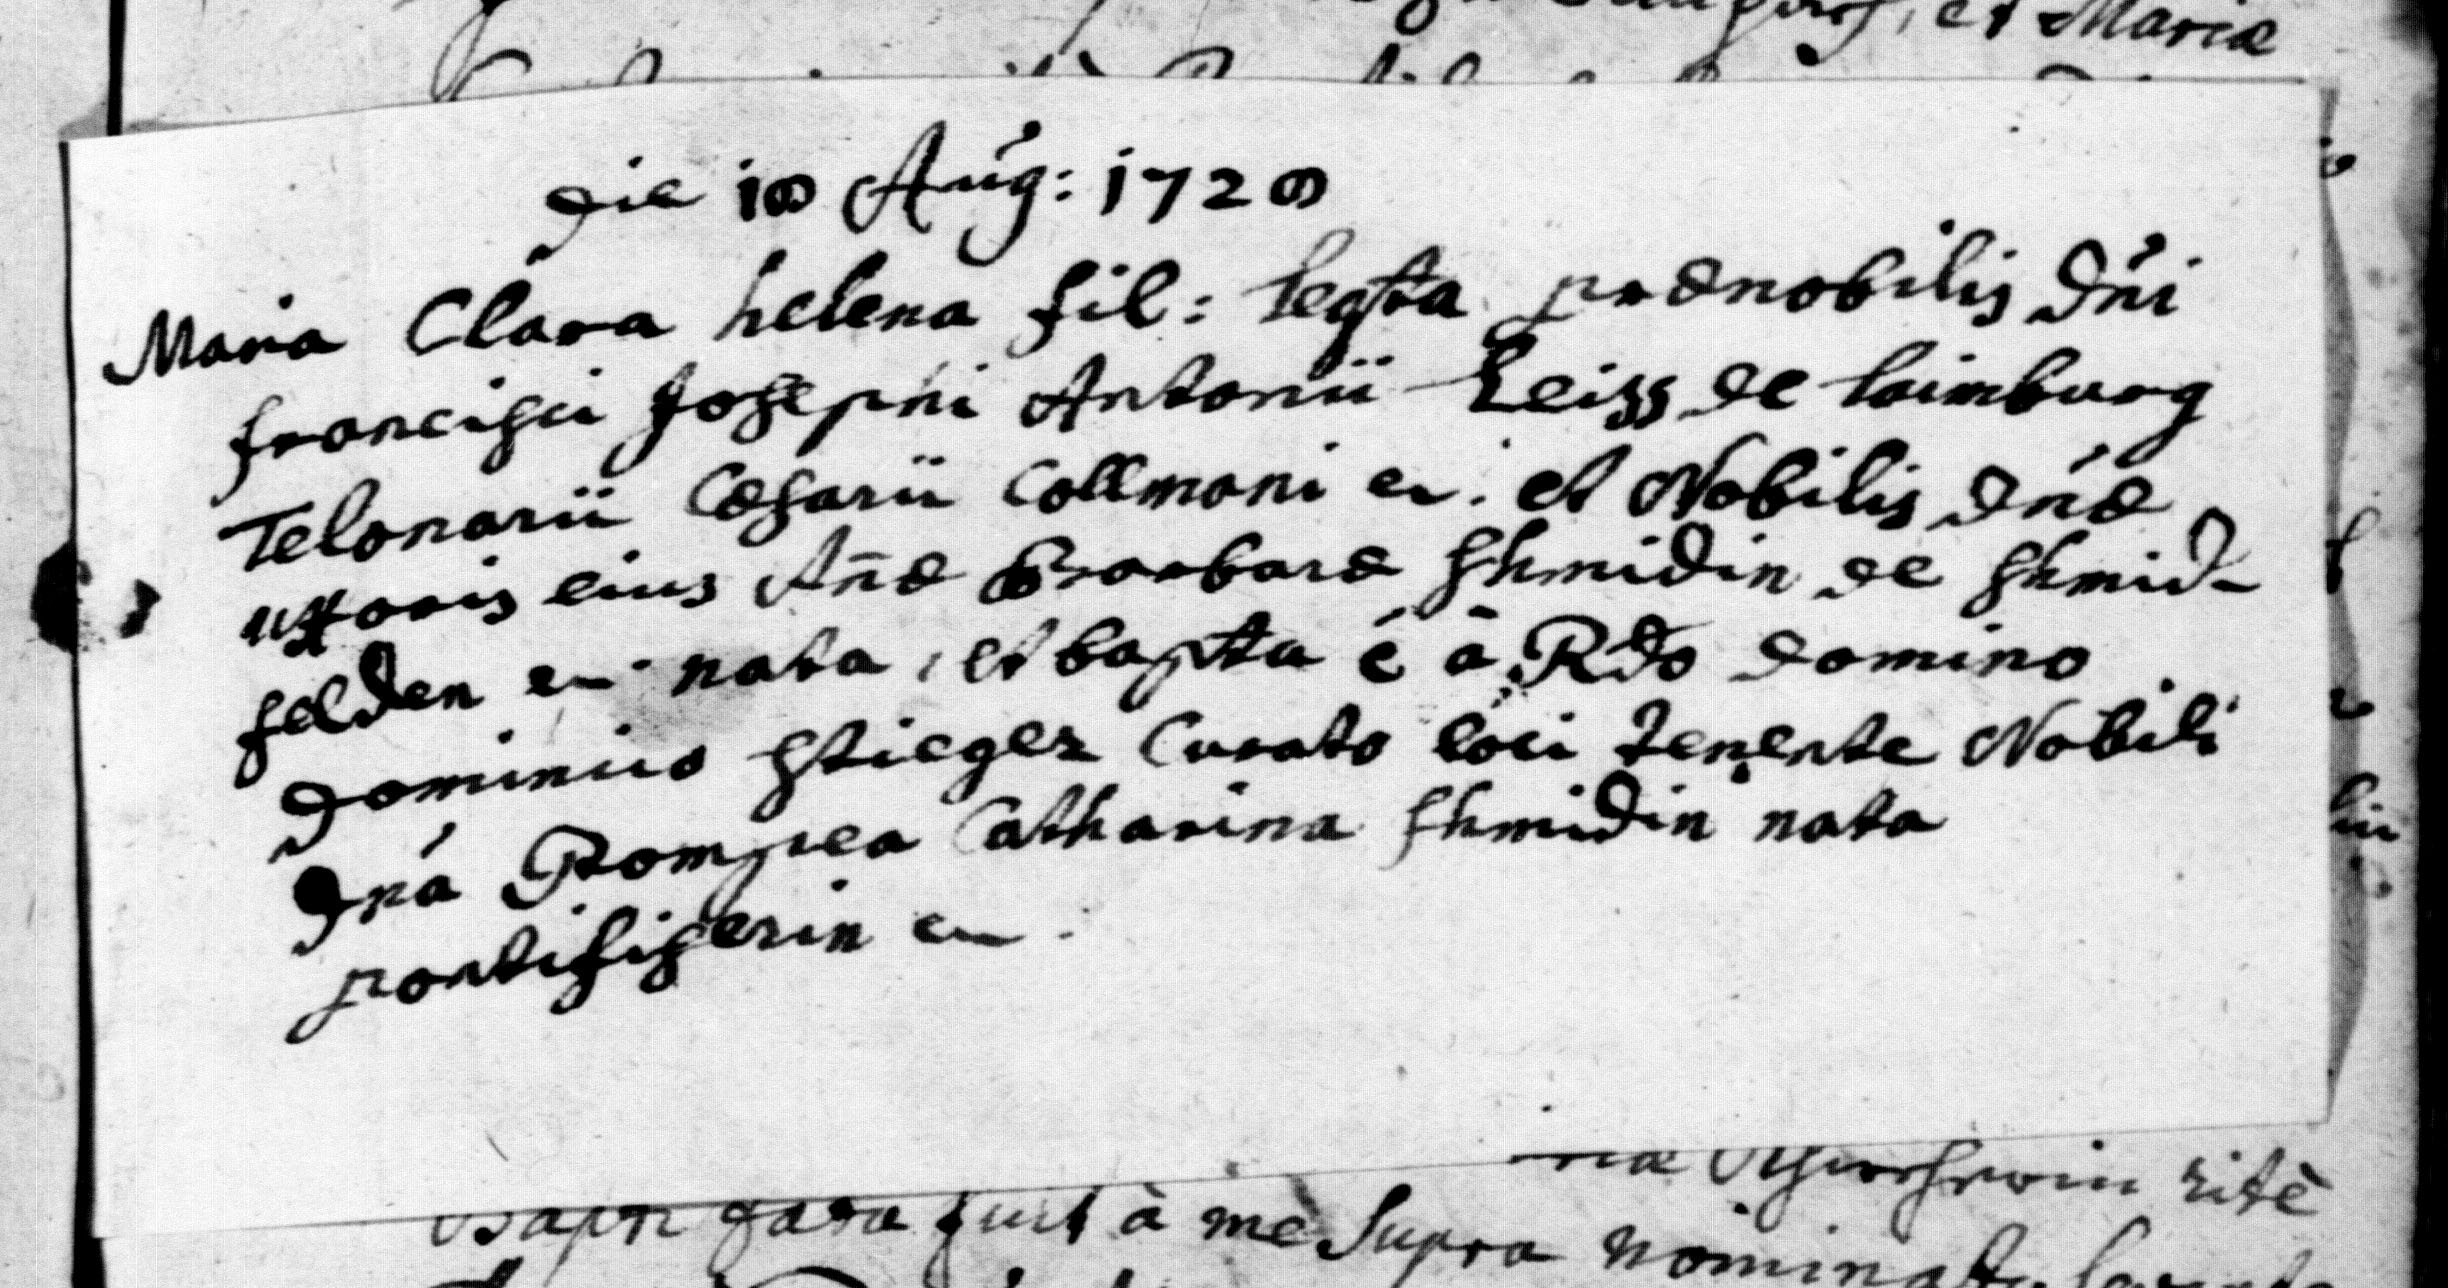 et Mariæ
die 18 Aug: 1728
Maria Clara helena fil: legta prænobilis Dni
francisci Josephi Antonii Leiss de laimburg
Telonarii Cæsarii Collmani etc. et Nobilis Dnæ
uxoris eius Añæ Barbaræ Shmidin de Shmid-
felden etc nata, et bapta é à Rdo Domino
Dominico Stieger Curato loci tenente Nobili
Dna Pompea Catharina Shmidin nata
pontifiserin etc.
rite
fuit à me supra